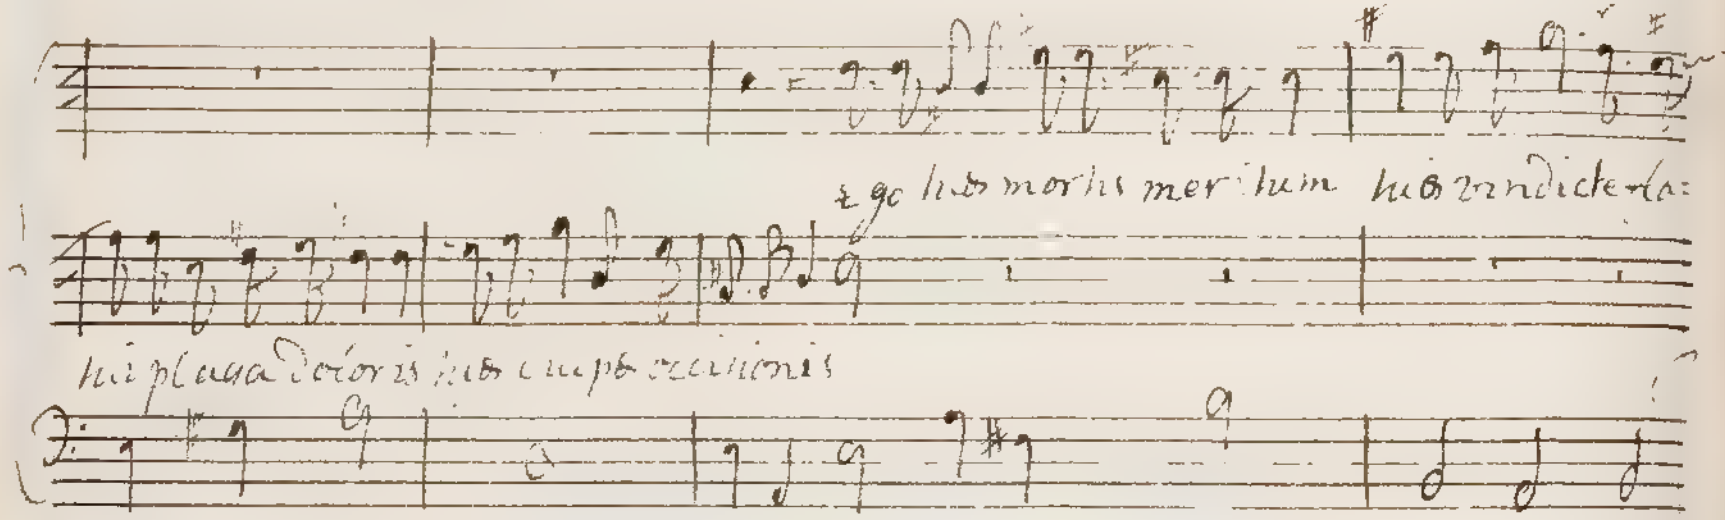 ego tuæ mortis meritum tuæ vindictæ fla=
tui plaga doloris tuæ culpæ occisionis